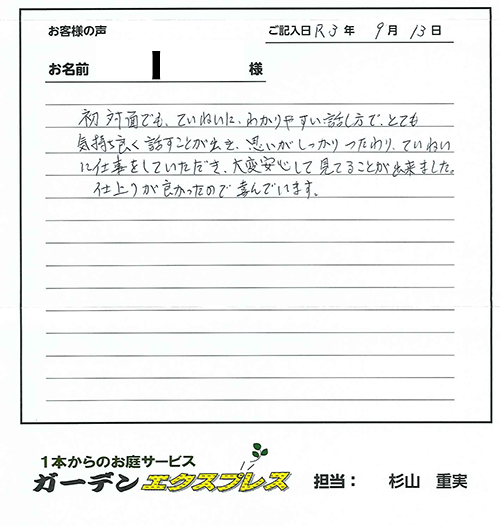 お客様の声
ご記入日 R3年 9月 13日
お名前 様
初対面でも、ていねいに、わかりやすい話し方で、とても
気持ち良く話すことが出き、思いがしっかりつたわり、ていねい
に仕事をしていただき、大変安心して見てることが出来ました。
仕上りが良かったので喜んでいます。
1本からのお庭サービス
ガーデンエクスプレス 担当： 杉山 重実